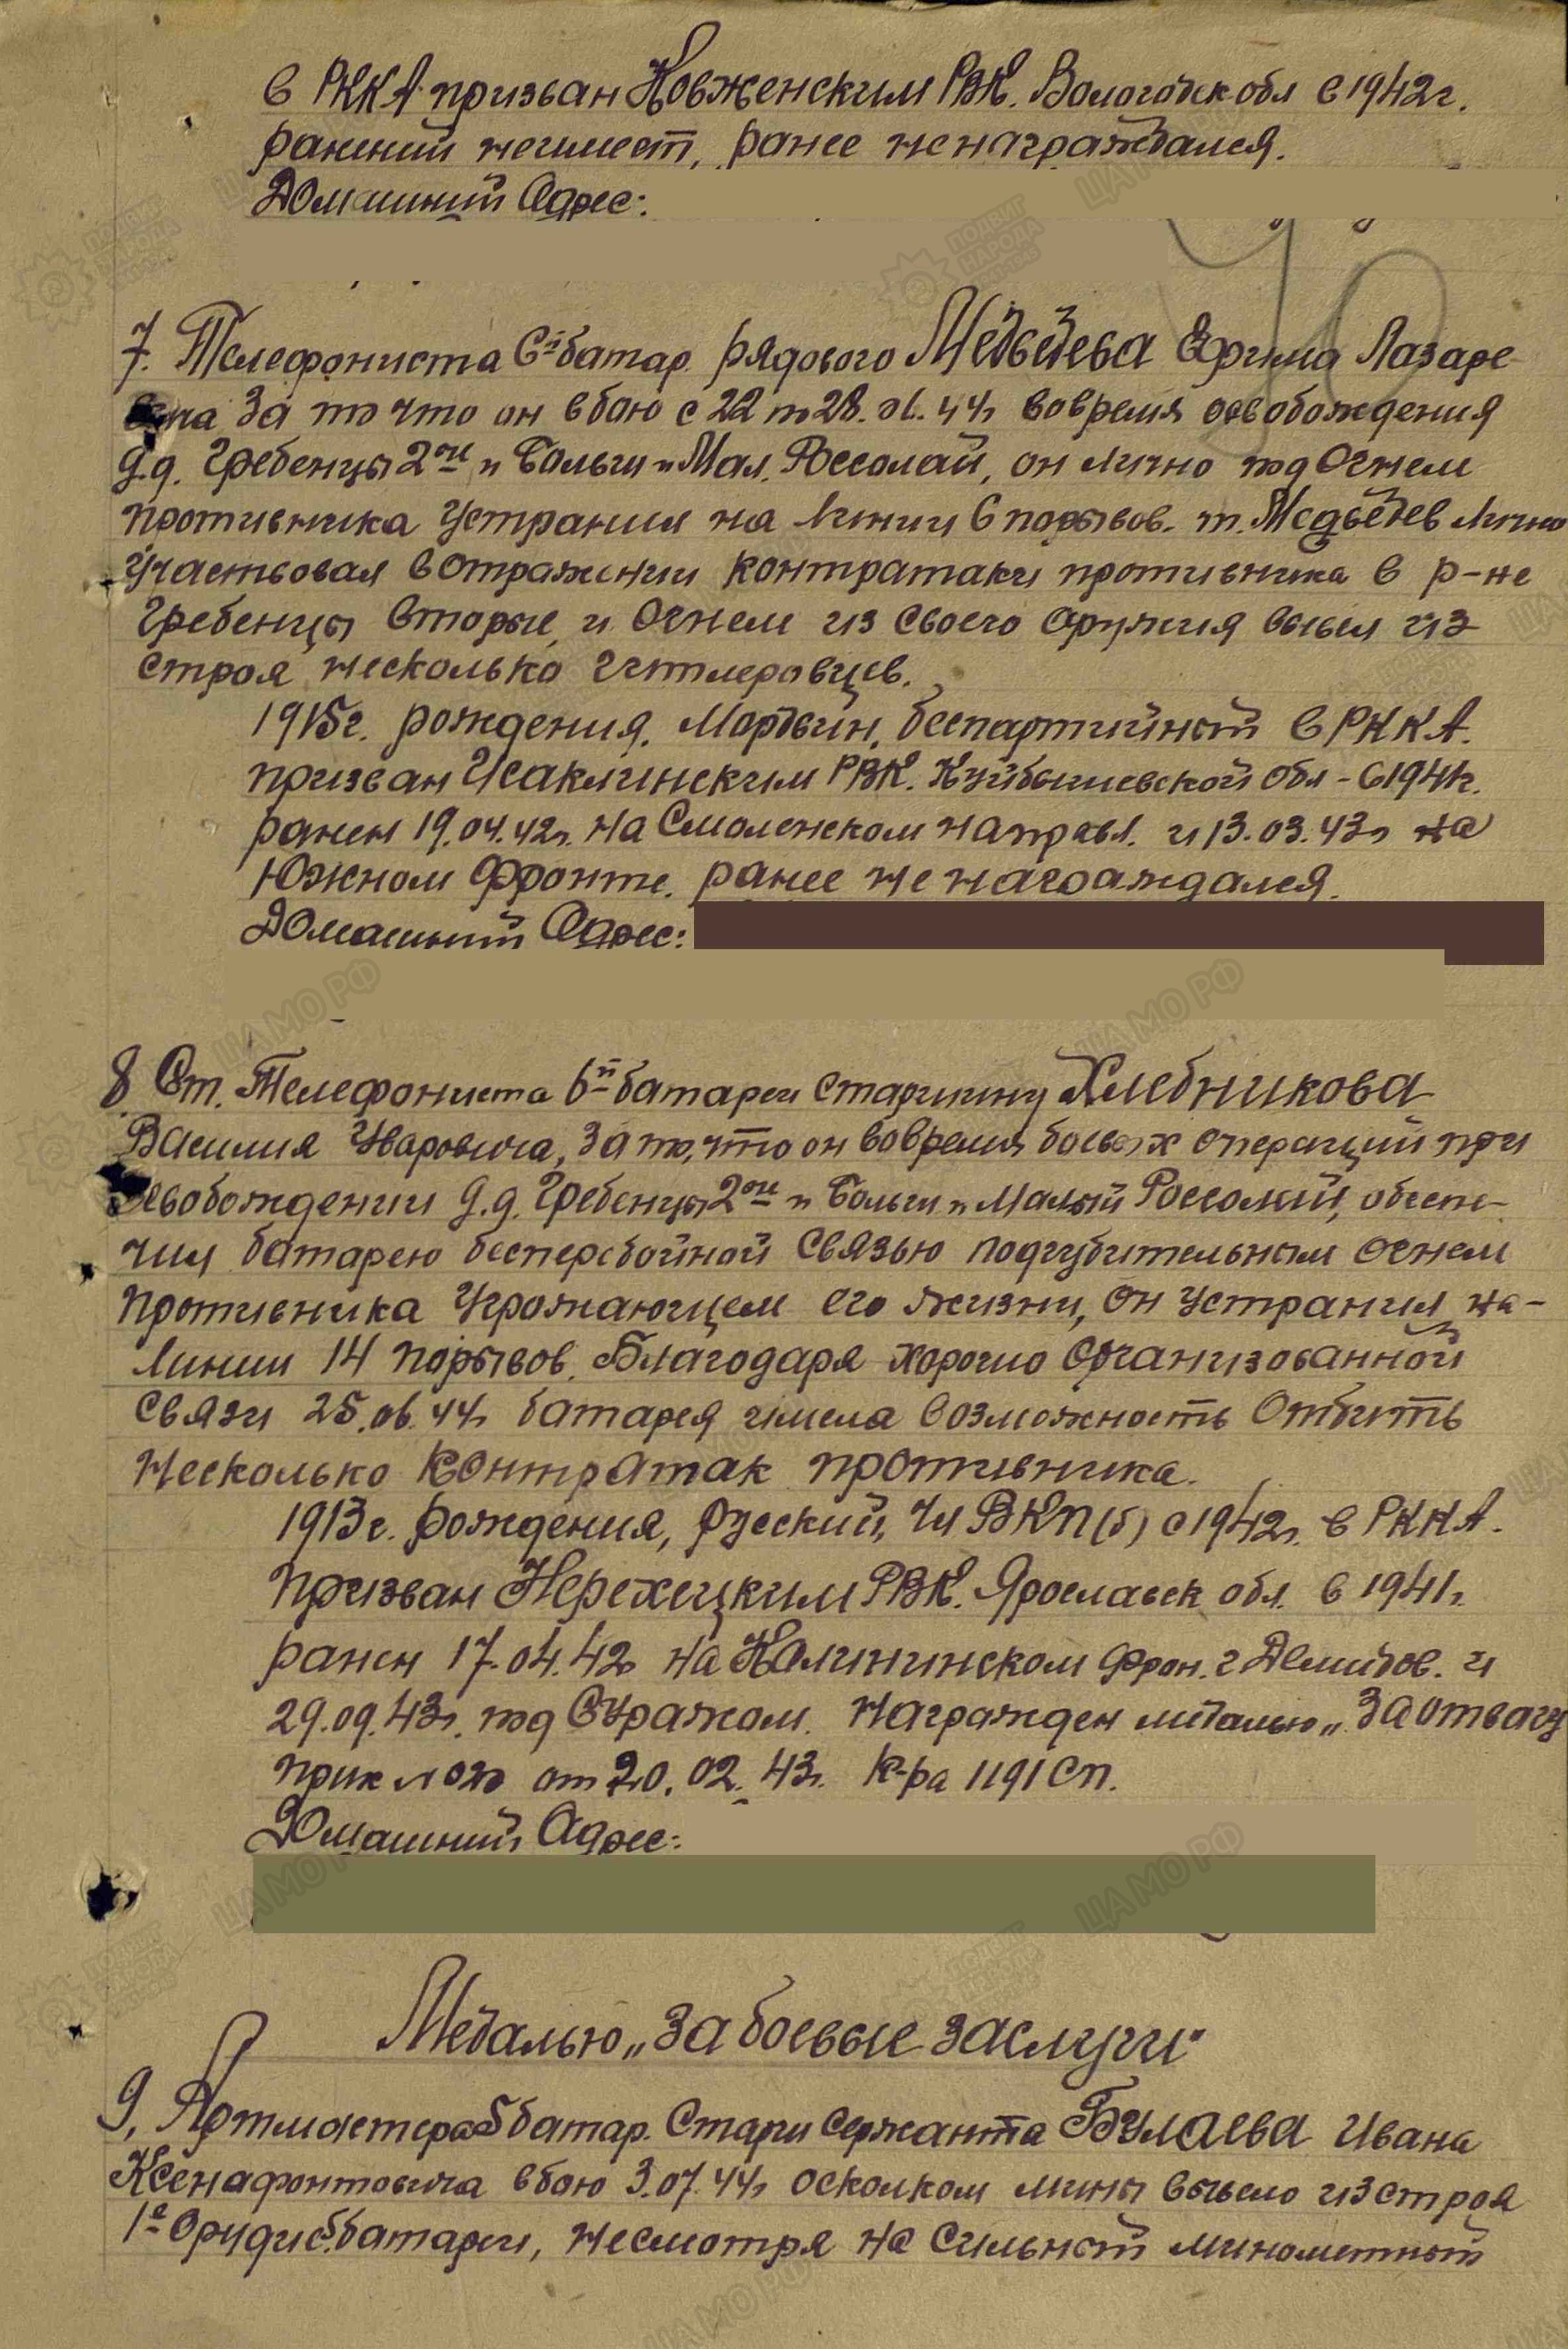 в РККА призван Ковженским РВК. Вологодск обл в 1942г.
ранений неимеет, ранее ненаграждался.
Домашний Адрес:
7. Телефониста 6й батар. рядового Медведева Ефима Лазаре-
вича за то что он в бою с 22 по 28.06.44г вовремя освобождения
д.д. Гребенцы 2ые и Больш и Мал. Россолай, он лично под Огнем
противника Устранил на линии 6 порывов. т. Медведев лично
Участвовал в Отражении контратаки противника в р-не
Гребенцы Вторые, и Огнем из своего Оружия вывел из
строя несколько гитлеровцев.
1915г. рождения, Мордвин, беспартийный в РККА.
призван Исаклинским РВК. Куйбышевской обл - в 1941г.
ранен 19.04.42г. на Смоленском направл. и 13.03.43г на
Южном Фронте. ранее не награждался.
Домашний Адрес:
8 Ст. Телефониста 6й батареи старшину Хлебникова
Василия Уваровича, за то, что он вовремя боевых операций при
Освобождении д.д. Гребенцы 2ые и Больш и Малый Россолай, обеспе-
чил батарею бесперебойной связью подгубительным огнем
противника Угрожающем его жизни, он устранил на-
линии 14 порывов. Благодаря хорошо Организованной
связи 25.06.44г батарея имела возможность Отбить
несколько контратак противника.
1913г. рождения, русский, чл ВКП(б) с 1942г. в РККА.
призван Нерехецким РВК. Ярославск обл. в 1941г.
ранен 17.04.42г на Калининском фрон. г Демидов. и
29.09.43г. под Суражом. награжден медалью „За отвагу
от 20.02.43г. к-ра 1191 сп.
Домашний Адрес:
Медалью „За боевые заслуги"
9. Артмастера 5 батар. Старш сержанта Булаева Ивана
Ксенафонтовича в бою 3.07.44г осколком мины вывело из строя
1е Орудие 5 батареи, несмотря на сильный минометный